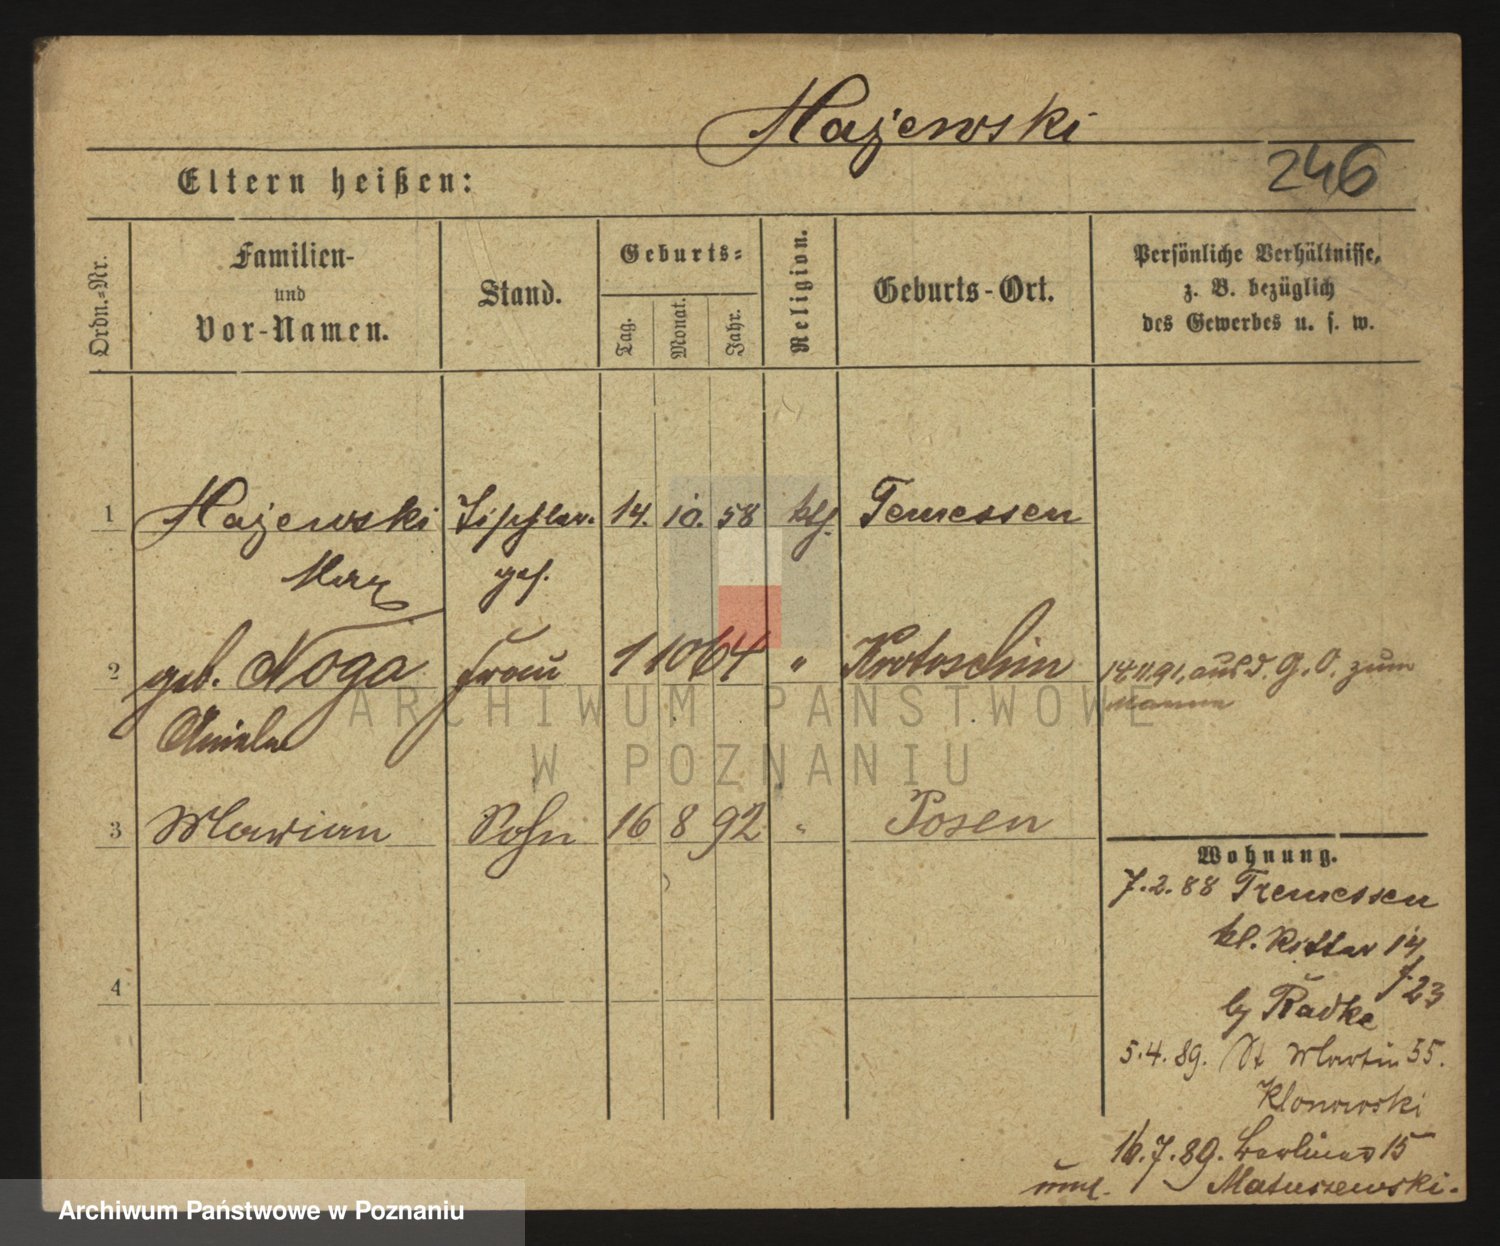 Majewski
246
Eltern heißen:
Ordn.-Nr.
Familien-
und
Vor-Namen.
Stand.
Geburts-
Tag.
Monat.
Jahr.
Religion.
Geburts-Ort.
Persönliche Verhältnisse,
z. B. bezüglich
des Gewerbes u. s. w.
1 Majewski Tischler- 14. 10. 58 kth. Temessen
Max ges.
2 geb. Noga Frau 1 10 64 " Krotoschin 14.11.91, aus d. G. O. zum
Aniela Manne
3 Marian Sohn 16 8 92 " Posen
4
Wohnung.
7.2.88 Tremessen
kl. Ritter 14
f. 23
by Radke
5.4.89. St Martin 55.
Klonowski
16.7.89. Berliner 15
Matuszewski.
ARCHIWUM PAŃSTWOWE
W POZNANIU
Archiwum Państwowe w Poznaniu